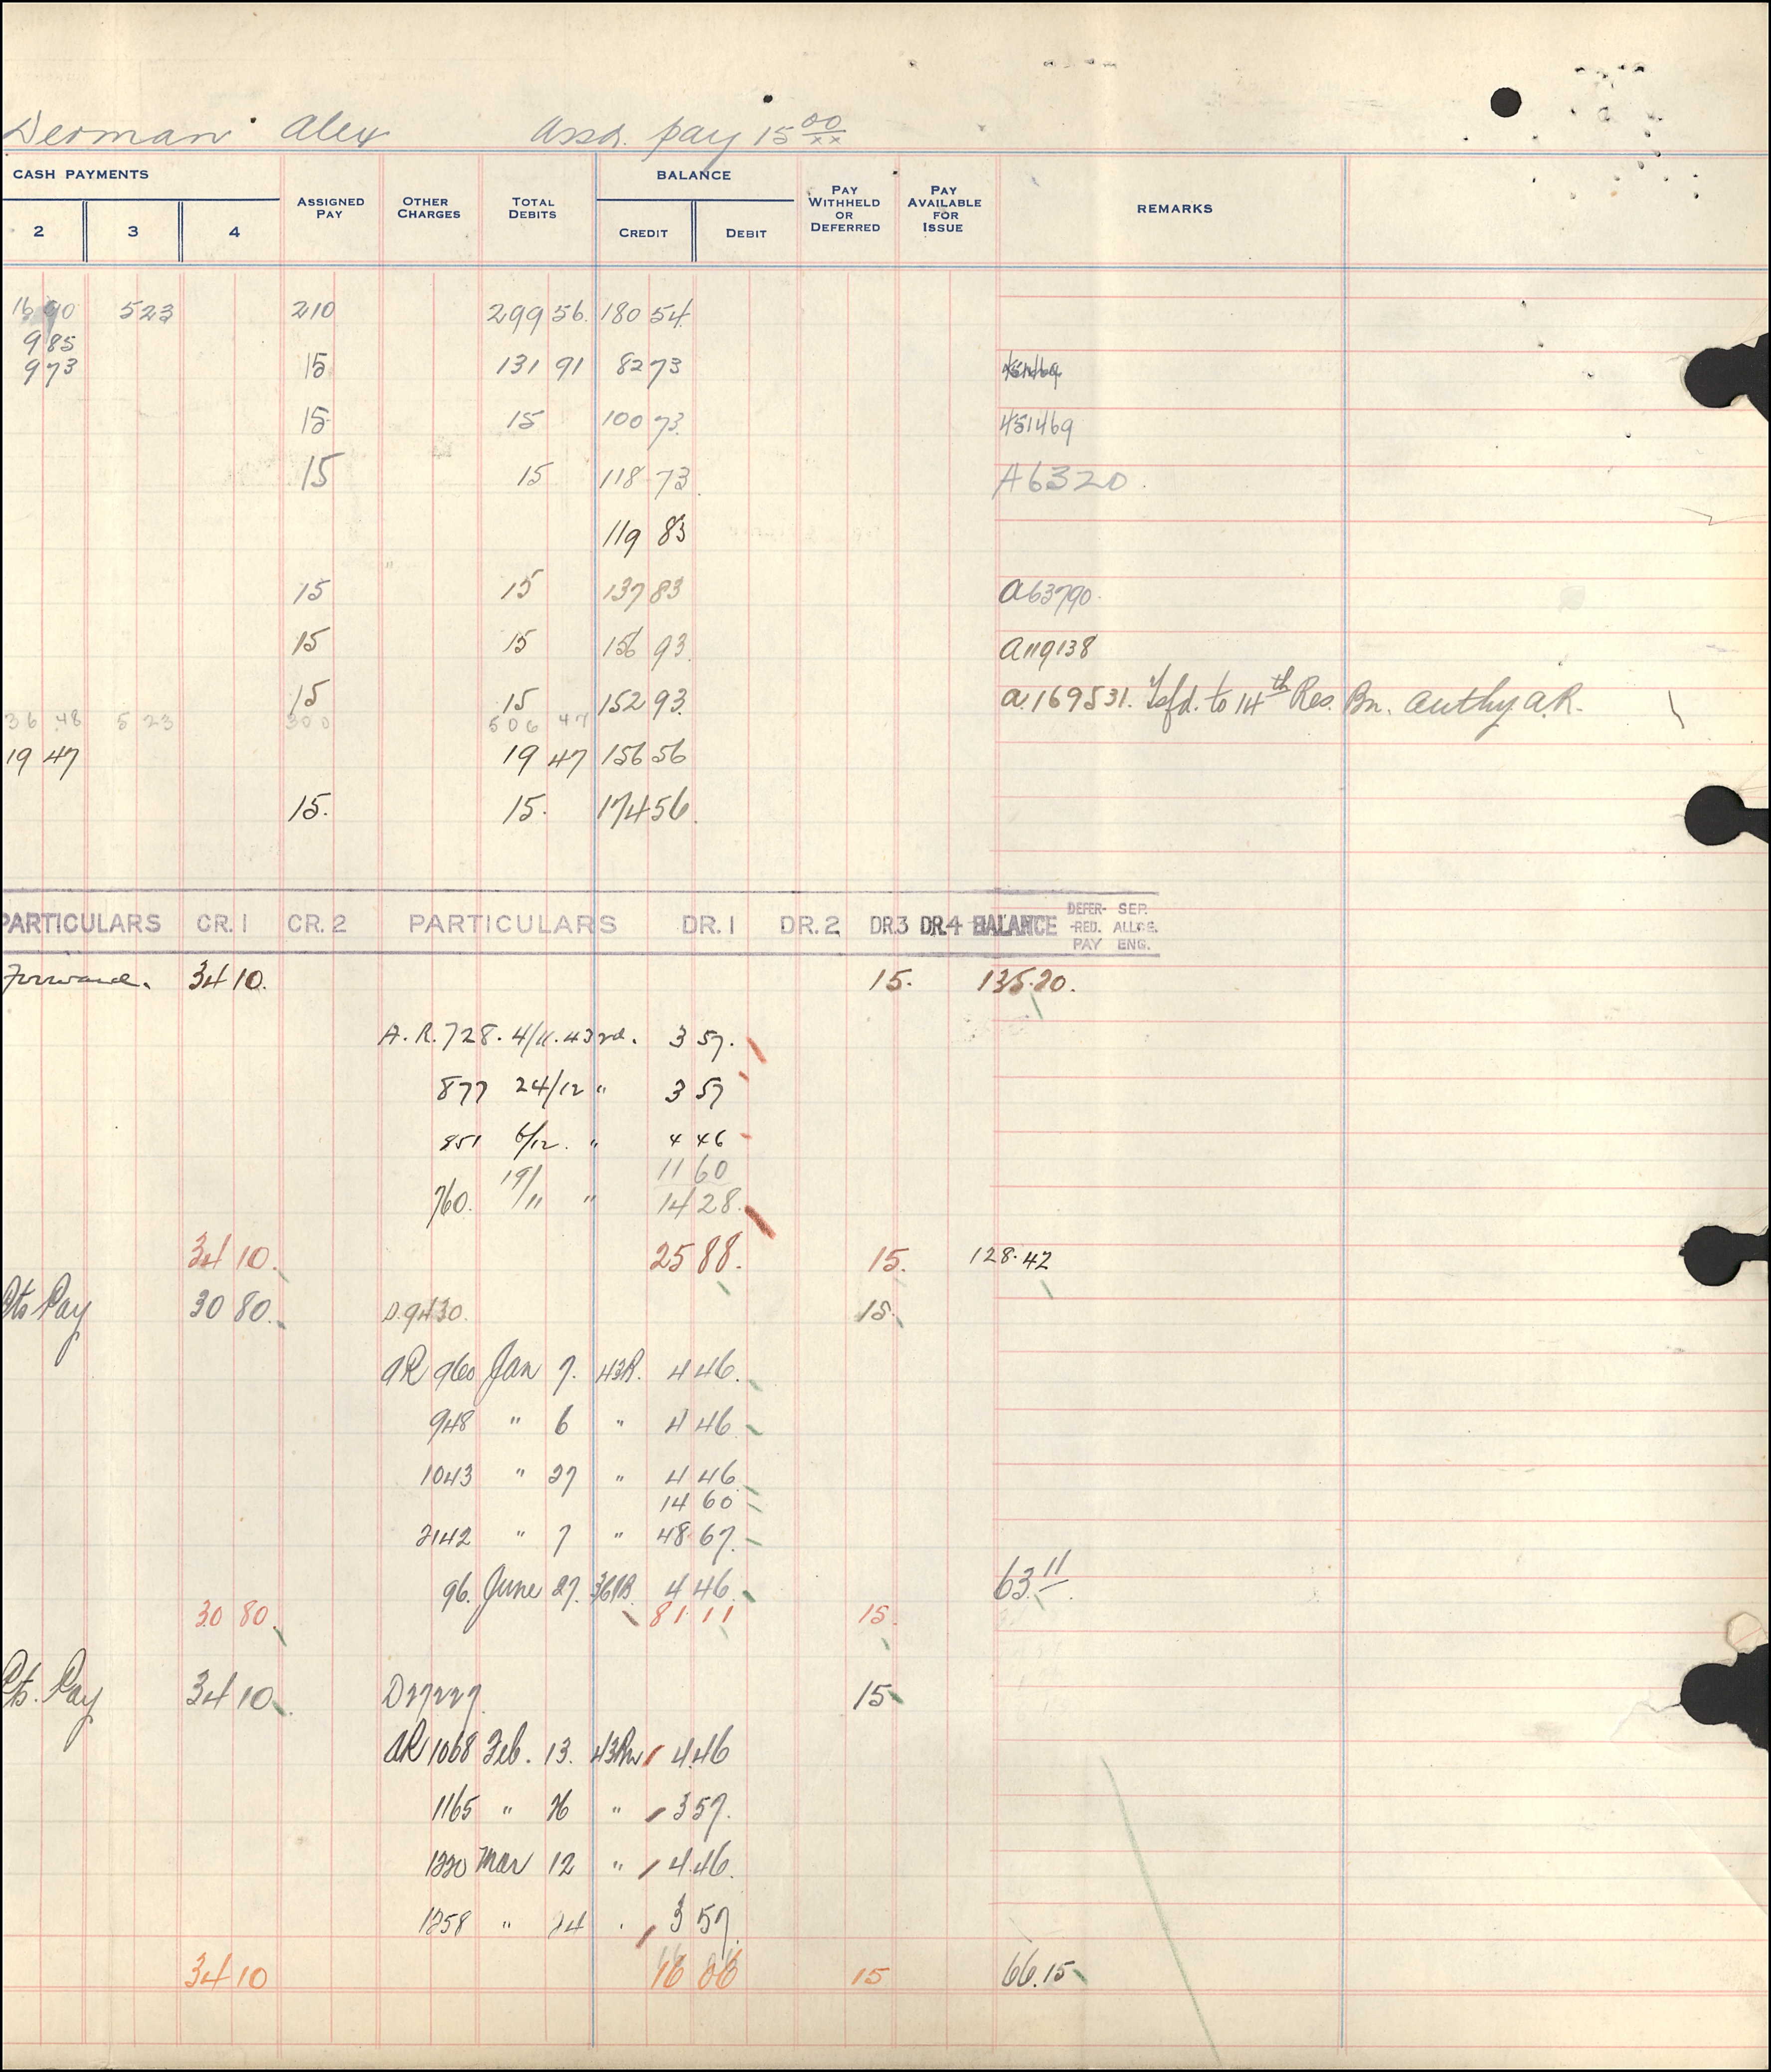 Derman Alex Assd. pay 15 00/xx
CASH PAYMENTS
2 3 4
ASSIGNED PAY
OTHER CHARGES
TOTAL DEBITS
BALANCE
CREDIT DEBIT
PAY WITHHELD OR DEFERRED
PAY AVAILABLE FOR ISSUE
REMARKS
16 90 5 23 210 299 56 180 54
9 85
9 73 15 131 91 82 73
15 15 100 73 451469
15 15 118 73 A6320.
119 83
15 15 137 83 a63790.
15 15 156 93 a119138
15 15 152 93 a.169531. Tsfd. to 14th Res. Bn. Authy. A.R.
36 48 5 23 300 506 47
19 47 19 47 156 56
15. 15. 174 56
PARTICULARS CR.1 CR.2 PARTICULARS DR.1 DR.2 DR.3 DR.4 BALANCE DEFER-RED. PAY SEP. ALLCE. ENG.
Forward. 34 10. 15. 135.20.
A.R. 728. 4/11. 43rd. 3 57.
877 24/12 " 3 57
851 6/12. " 4 46
11 60
760. 19/11 " 14 28.
34 10. 25 88. 15. 128.42
Pts Pay 30 80. D.9430. 15.
AR 960 Jan 7. 43R. 4 46.
948 " 6 " 4 46
1043 " 27 " 4 46
14 60
2142 " 7 " 48 67.
96. June 27. 4 46. 63.11
30 80. 81 11 15.
Pts. Pay 34 10. D27227. 15
AR 1068 Feb. 13. 43Rw 4.46
1165 " 26 " 3 57.
1220 Mar 12 " 4.46.
1258 " 24 3 57.
34 10 16 06 15 66.15